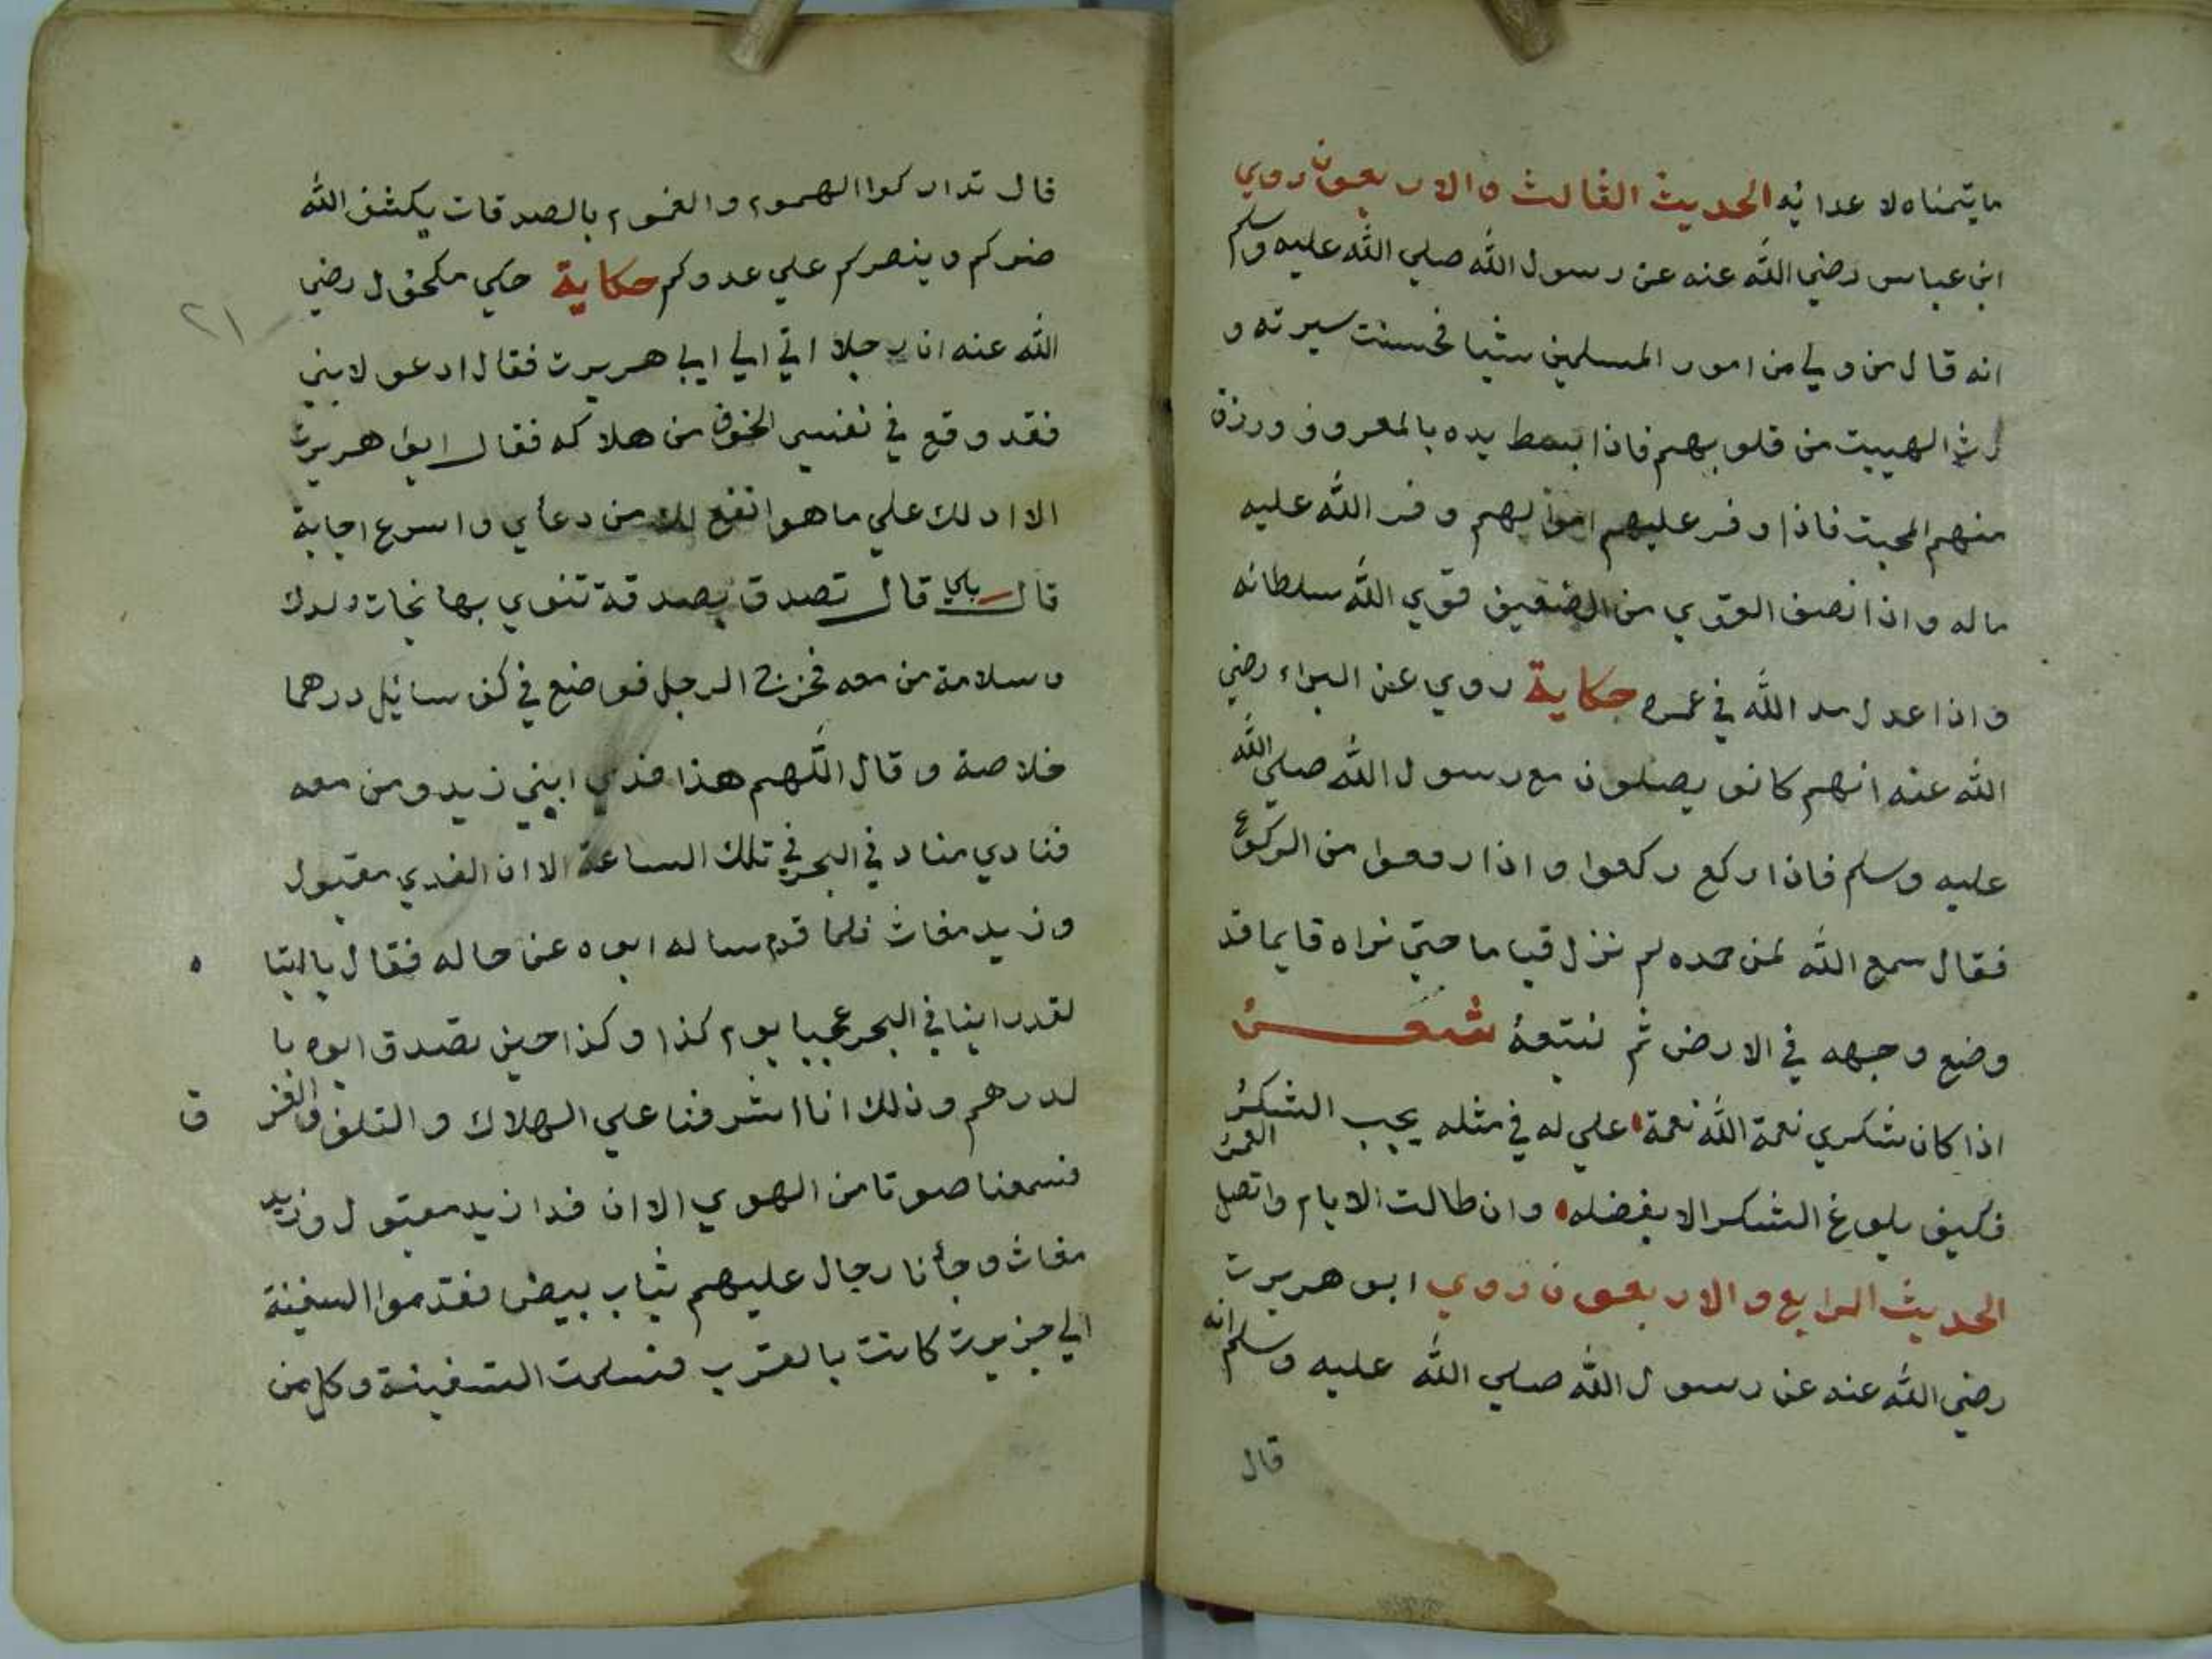 ما يتمناه لا عدائه الحديث الثالث والاربعون روي
ابن عباس رضي الله عنه عن رسول الله صلي الله عليه وسلم
انه قال من ولي من امور المسلمين شيا فحسنت سيرته و
الهيبت من قلوبهم فاذا بسط يده بالمعروف ورزق
منهم المحبت فاذا وفر عليهم اموالهم وفر الله عليه
ماله واذا انصف القوي من الضعيف قوي الله سلطانه
واذا عدل مد الله في عمره حكاية روي عن البراء رضي
الله عنه انهم كانو يصلون مع رسول الله صلي الله
عليه وسلم فاذا ركع ركعوا واذا رفعوا من الركوع
فقال سمع الله لمن حمده لم نزل قياما حتي نراه قايما قد
وضع وجهه في الارض ثم نتبعه شعر
اذا كان شكري نعمة الله نعمة علي له في مثله يجب الشكر
فكيف بلوغ الشكر الا بفضله وان طالت الايام واتصل العمر
الحديث الرابع والاربعون روي ابو هريرت
رضي الله عنه عن رسول الله صلي الله عليه وسلم انه
قال
قال تداركوا الهموم والغموم بالصدقات يكشف الله
ضركم وينصركم علي عدوكم حكاية حكي مكحول رضي
الله عنه ان رجلا اتي الي ابي هريرت فقال ادعو لابني
فقد وقع في نفسي الخوف من هلاكه فقال ابو هريرت
الا ادلك علي ما هو انفع لك من دعأي واسرع اجابة
قال بلي قال تصدق بصدقة تنوي بها نجات ولدك
وسلامة من معه فخرج الرجل فوضع في كف سائيل درهما
خلاصة وقال اللهم هذا فدي ابني زيد ومن معه
فنادي مناد في البحر في تلك الساعة الا ان الفدي مقبول
وزيد مغاث فلما قدم ساله ابوه عن حاله فقال يا ابتا ه
لقد راينا في البحر عجبا يوم كذا وكذا حين تصدق ابوه با
لدرهم وذلك انا اشرفنا علي الهلاك والتلف والغر ق
فسمعنا صوتا من الهوي الا ان فدا زيد مقبول وزيد
مغاث وجأنا رجال عليهم ثياب بيض فقدموا السفينة
الي جزيرت كانت بالقرب فسلمت السفينة وكل من
٢١